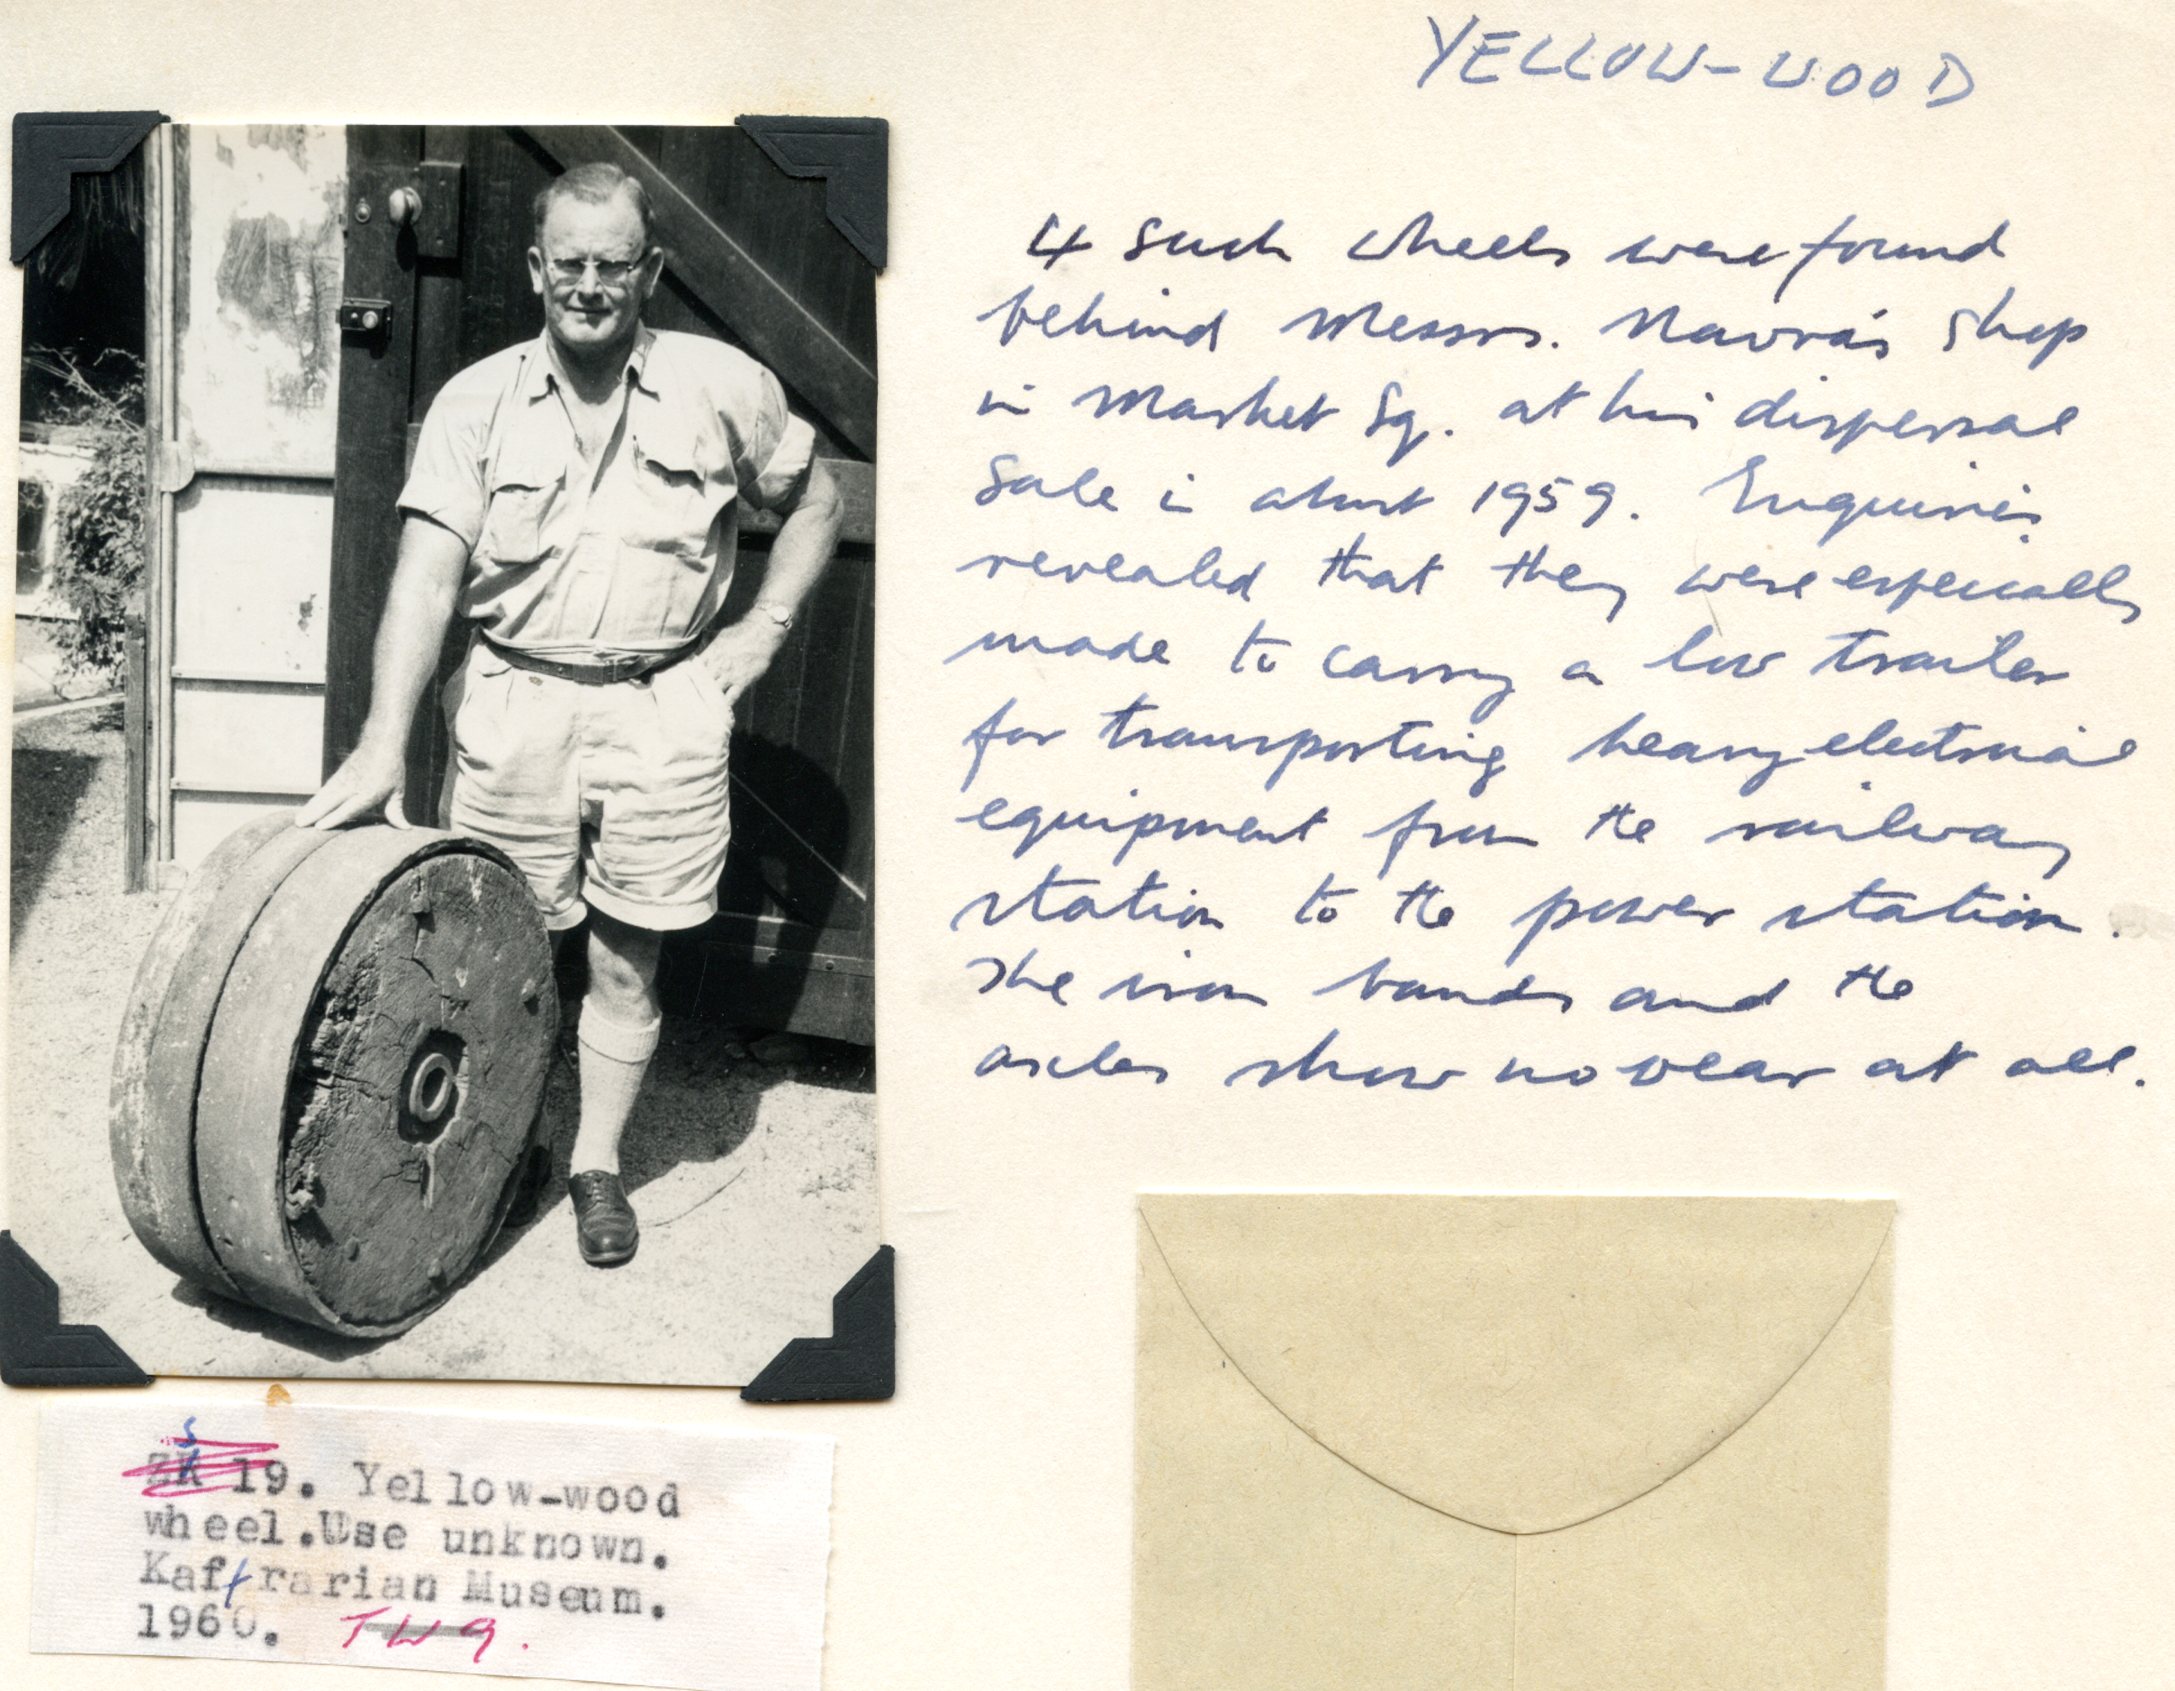 YELLOW-WOOD
4 such wheels were found
behind Messrs. Navra's shop
in Market Sq. at his dispersal
sale in about 1959. Enquiries
revealed that they were especially
made to carry a low trailer
for transporting heavy electrical
equipment from the railway
station to the power station.
The iron bands and the
axles show no wear at all.
S
19. Yellow-wood
wheel.Use unknown.
Kaffrarian Museum.
1960.